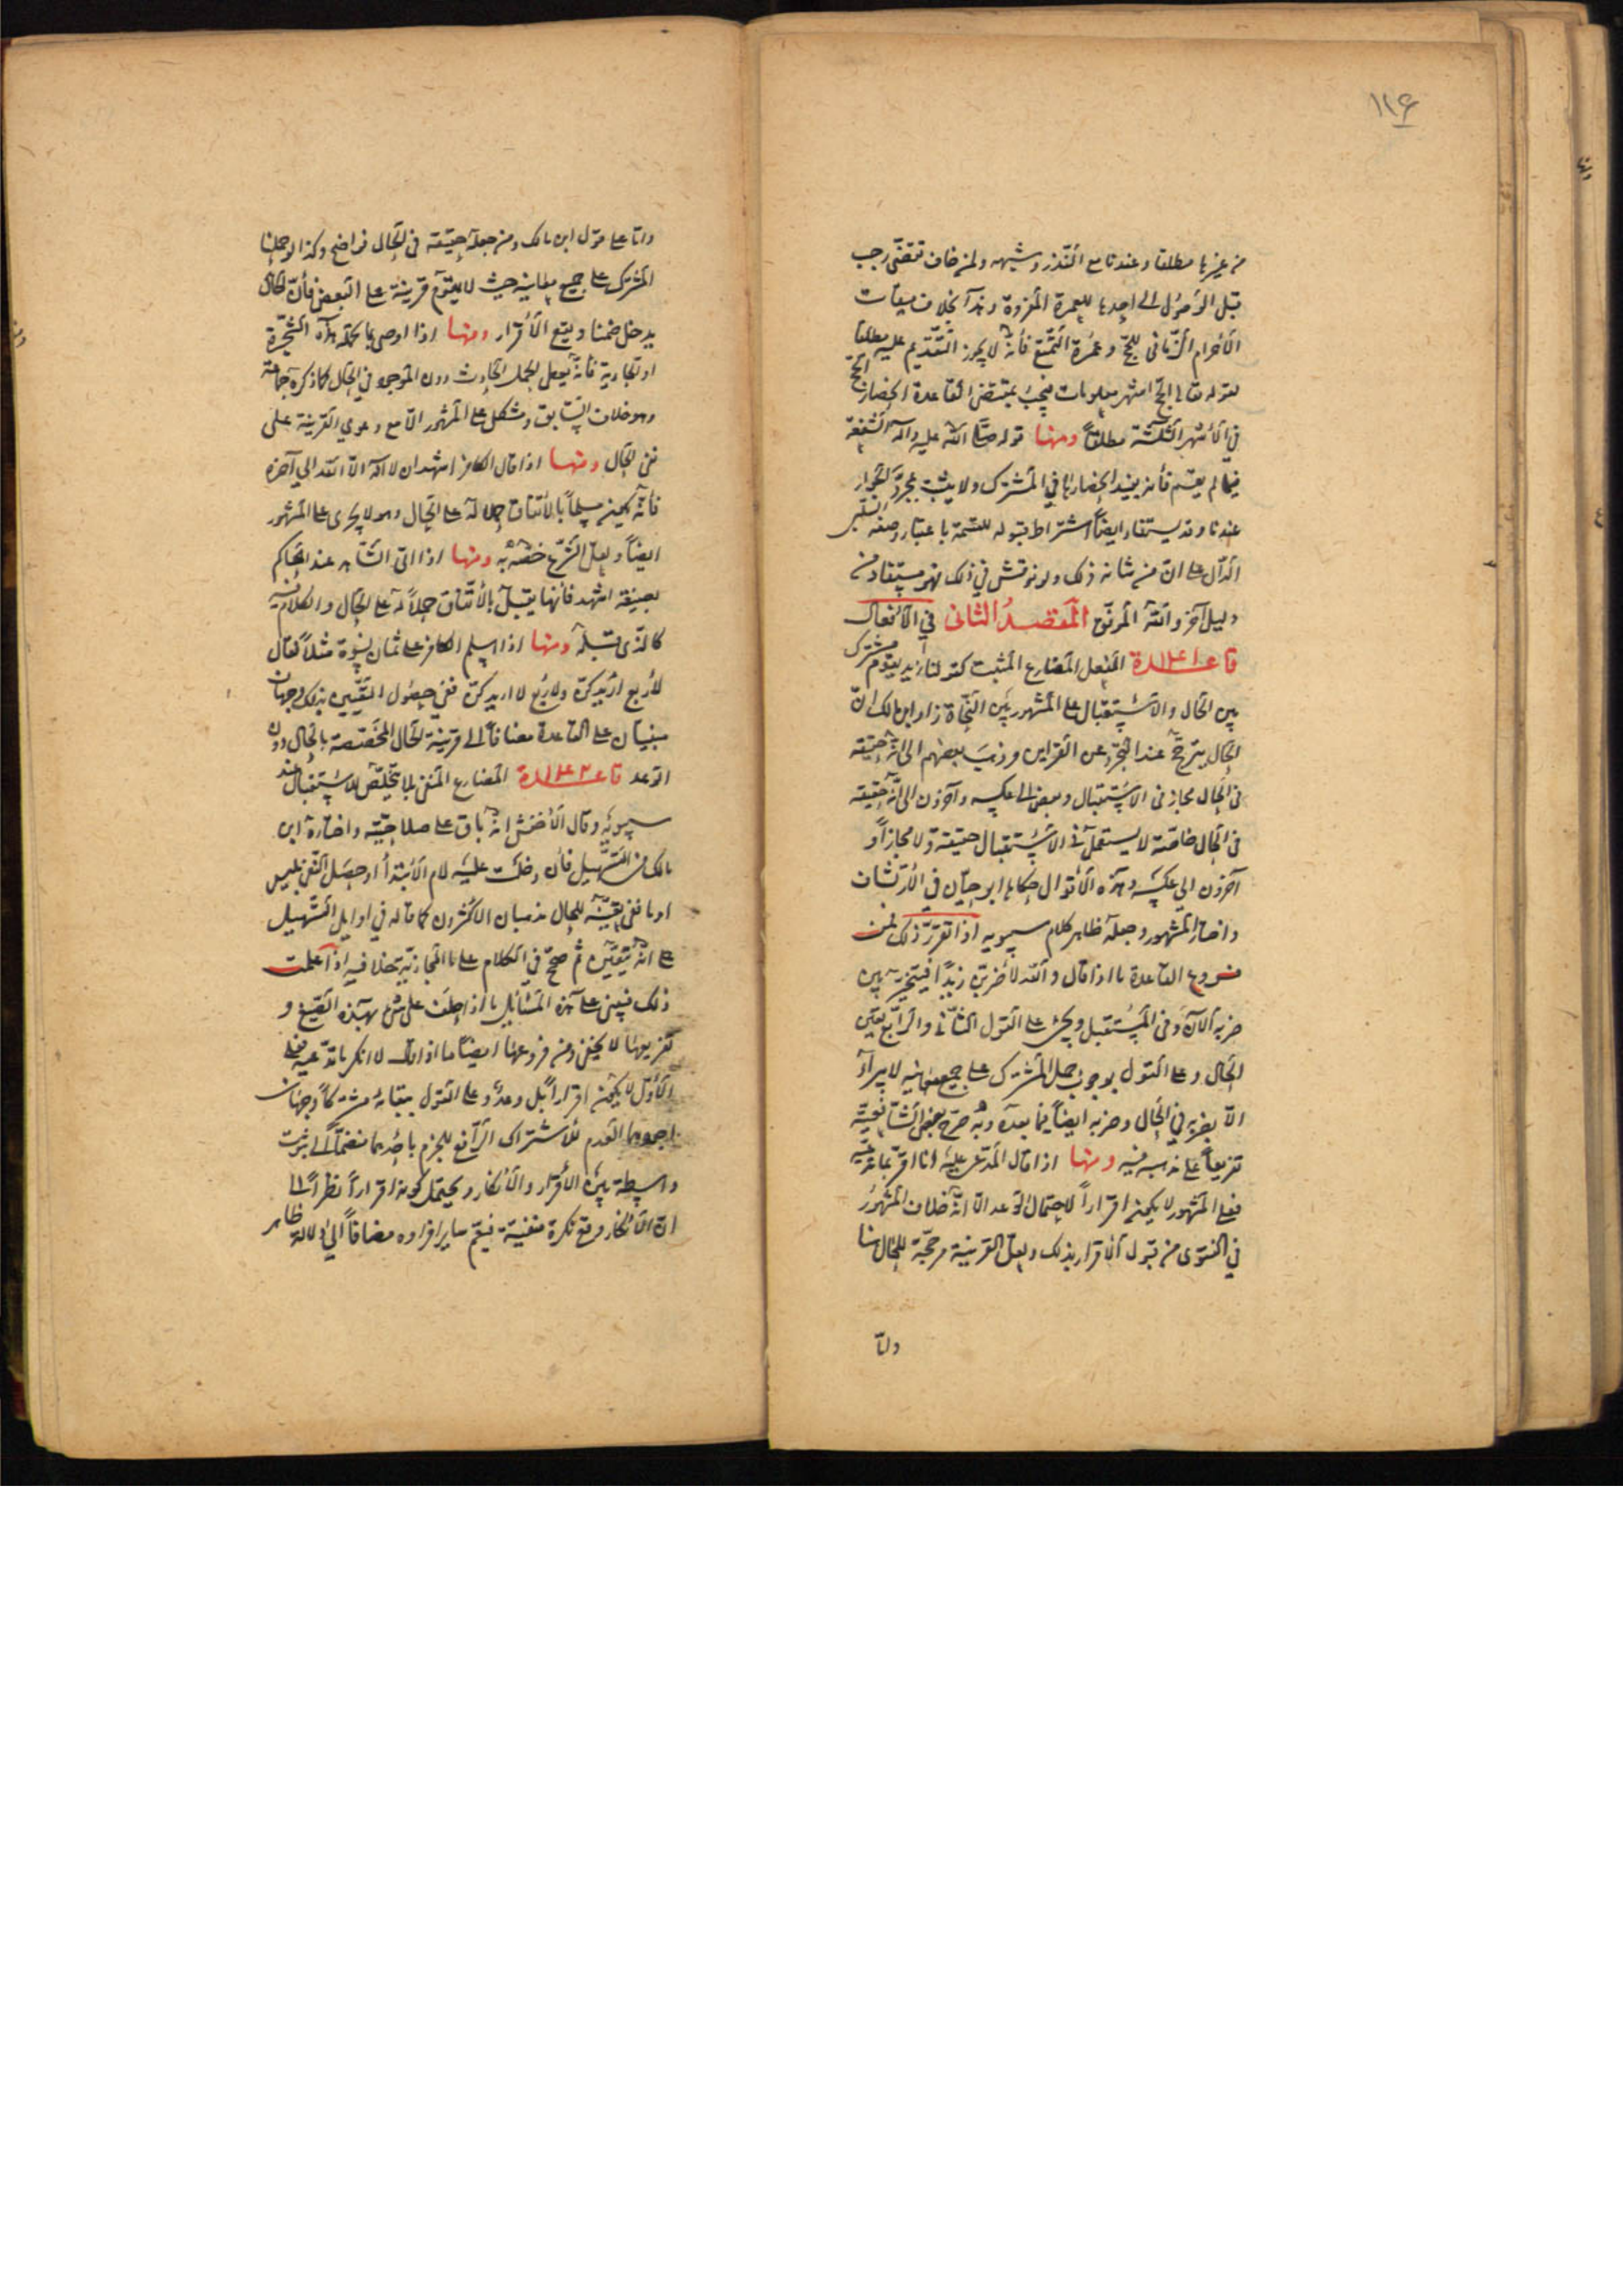 ١١٤
من غيرها مطلقا وعندنا مع النذر وشبهه ولمن خاف تقضى رجب
قبل الوصول الى احدها للعمرة المفردة وهذا بخلاف ميقات
الاحرام الزمانى للحج وعمرة التمتع فانه لا يجوز التقديم عليه مطلقا
لقوله تعالى الحج اشهر معلومات فيجب بمقتضى القاعدة انحصار الحج
في الاشهر الثلثة مطلقا ومنها قوله صلى الله عليه وآله الشفعة
فيما لم يقسم فانه يفيد انحصارها في المشترك ولا يثبت بمجرد الجوار
عندنا وقد يستفاد ايضا اشتراط قبوله للقسمة باعتبار وصفه
الدال على ان من شانه ذلك ولو نوقش في ذلك فهو مستفاد من
دليل آخر والله الموفق المقصد الثانى في الافعال
قاعدة الفعل المضارع المثبت كقولنا زيد يقوم مشترك
بين الحال والاستقبال على المشهور بين النحاة زاد ابن مالك ان
الحال يترجح عند التجرد عن القراين وذهب بعضهم الى انه حقيقة
فى الحال مجاز فى الاستقبال وبعض الى عكسه وآخرون الى انه حقيقة
فى الحال خاصة لا يستعمل فى الاستقبال حقيقة ولا مجازا و
آخرون الى عكسه وهذه الاقوال حكاها ابو حيان في الارتشاف
واختار المشهور وجعله ظاهر كلام سيبويه اذا تقرر ذلك فمن
فروع القاعدة ما اذا قال والله لاضربن زيدا فيتخير بين
ضربه الآن وفى المستقبل ويحنث على القول الثانى والرابع يتعين
الحال وعلى القول بوجوب حمل المشترك على جميع معانيه لا يبرأ
الا بضربه في الحال وضربه ايضا فيما بعده وبه صرح بعض الشافعية
تفريعا على مذهبه فيه ومنها اذا قال المدعى عليه انا اقر بما تدعيه
فعلى المشهور لا يكون اقرارا لاحتمال الوعد الا انه خلاف المشهور
في الفتوى من قبول الاقرار بذلك ولعل القرينة مرجحة للحال هنا
واما
واما على قول ابن مالك ومن جعله حقيقة فى الحال فواضح وكذا لو حملنا
المشترك على جميع معانيه حيث لا يقوم قرينة على البعض فان الحال
يدخل ضمنا ويقع الاقرار ومنها اذا اوصى بما تحمله هذه الشجرة
او الجارية فانه يعطى الحمل الحادث دون الموجود في الحال كما ذكره جماعة
وهو خلاف السابق ومشكل على المشهور الا مع دعوى القرينة على
نفى الحال ومنها اذا قال الكافر اشهد ان لا اله الا الله الى آخره
فانه يكون مسلما بالاتفاق حملا له على الحال وهو لا يجرى على المشهور
ايضا ولعل الشرع خصه به ومنها اذا اتى الشاهد عند الحاكم
بصيغة اشهد فانها يقبل بالاتفاق حملا له على الحال والكلام فيه
كالذى قبله ومنها اذا اسلم الكافر على ثمان نسوة مثلا فقال
لاربع اريدكن ولاربع لا اريدكن ففى حصول التعيين بذلك وجهان
مبنيان على القاعدة مضافا الى قرينة الحال المختصة بالحال دون
الوعد قاعدة المضارع المنفى بلا يتخلص للاستقبال عند
سيبويه وقال الاخفش انه باق على صلاحيته واختاره ابن
مالك فى التسهيل فان دخلت عليه لام الابتدا او حصل النفى بليس
او ما ففى تعينه للحال مذهبان الاكثرون كما قاله في اوايل التسهيل
على انه يتعين ثم صحح في الكلام على ما الحجازية خلافه اذا علمت
ذلك فينبنى على هذه المسائل ما اذا حلف على شئ بهذه الصيغ و
تفريعها لا يخفى ومن فروعها ايضا ما اذا قال لا انكر ما تدعيه فعلى
الاول لا يكون اقرارا بل وعدا وعلى القول ببقائه مشتركا وجهان
اجودهما العدم للاشتراك الرافع للجزم باحدهما منضما الى ثبوت
واسطة بين الاقرار والانكار ويحتمل كونه اقرارا نظرا الى
ان الانكار وقع نكرة منفية فيعم ساير افراده مضافا الى دلالة ظاهر